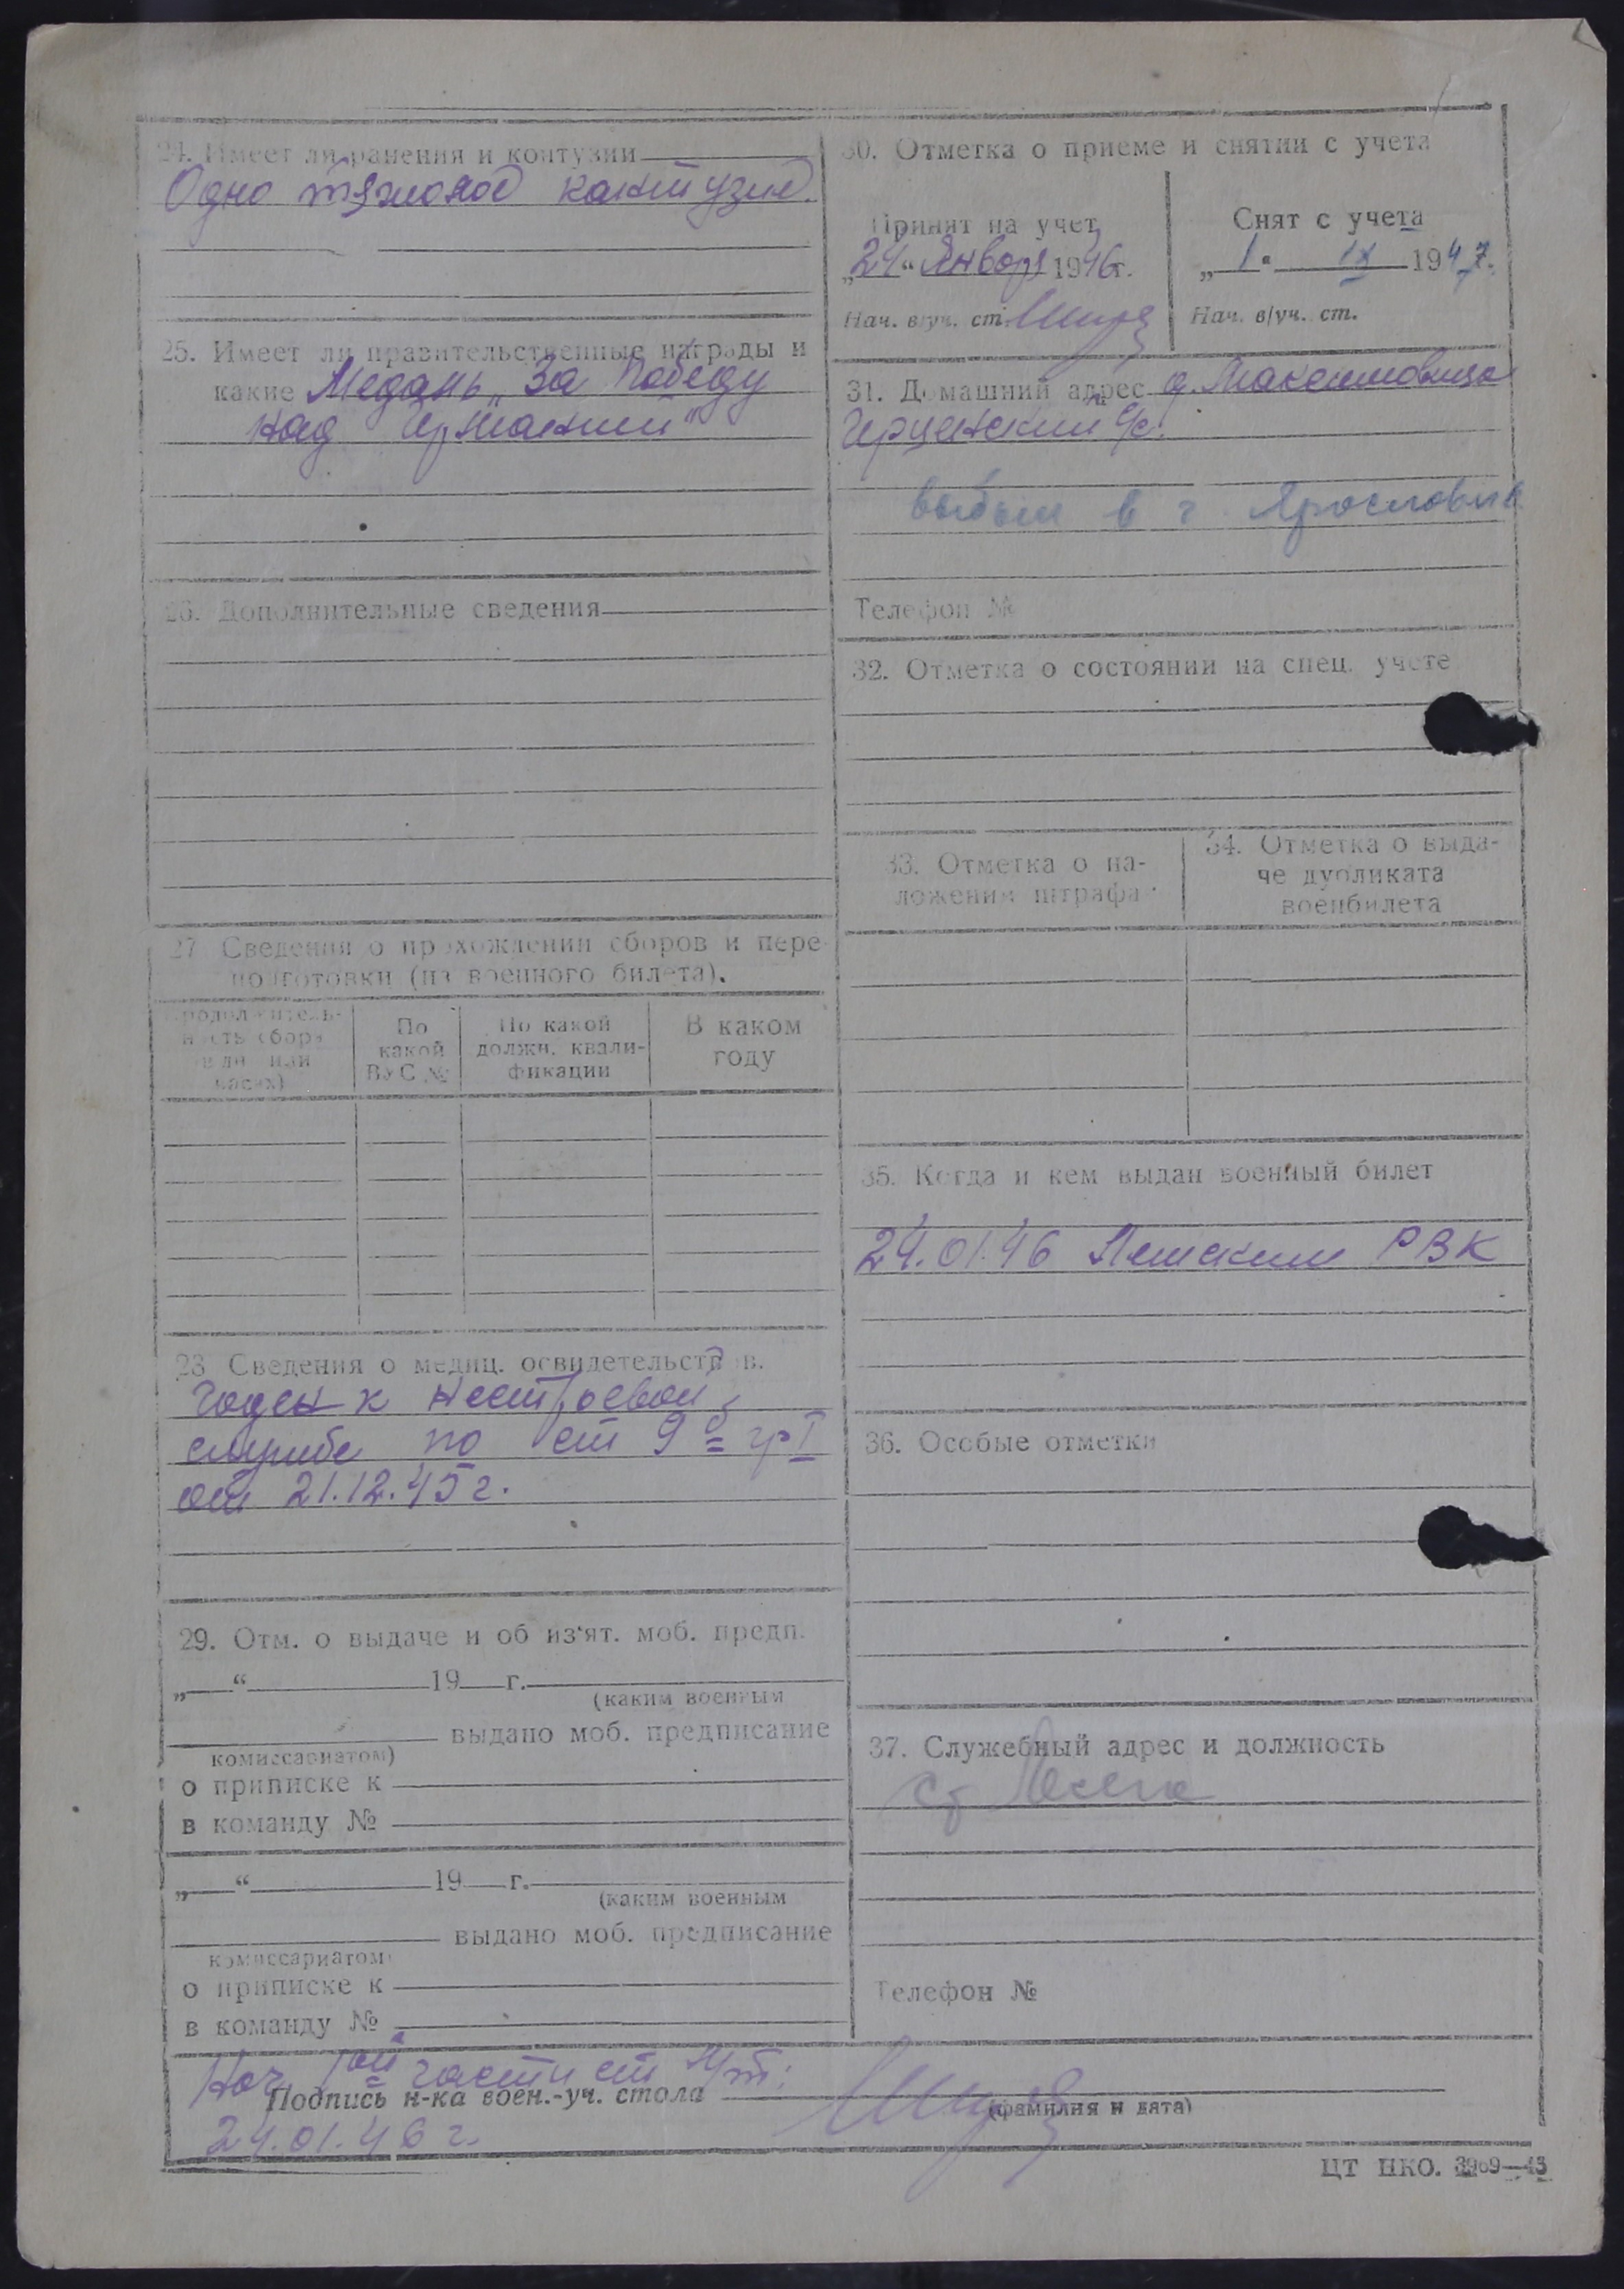 24. Имеет ли ранения и контузии
Одно тяжолое кантузие.
25. Имеет ли правительственные награды и
какие Медаль „За Победу
над Германией“
26. Дополнительные сведения
27. Сведения о прохождении сборов и пере-
подготовки (из военного билета).
Продолжитель-
ность сбора
(в дн. или
часах)
По
какой
ВУС №
По какой
должн. квали-
фикации
В каком
году
28 Сведения о медиц. освидетельств в.
Годен к нестроевой
службе по ст 9 б гр I
от 21.12.45 г.
29. Отм. о выдаче и об из'ят. моб. предп.
„ “ 19 г.
(каким военным
выдано моб. предписание
комиссариатом)
о приписке к
в команду №
„ “ 19 г.
(каким военным
выдано моб. предписание
комиссариатом)
о приписке к
в команду №
30. Отметка о приеме и снятии с учета
Принят на учет
„24“ Января 1946г.
Нач. в/уч. ст.
Снят с учета
„1“ IX 1947.
Нач. в/уч. ст.
31. Домашний адрес д.
с/с.
выбыл в г. Ярославль
Телефон №
32. Отметка о состоянии на спец. учете
33. Отметка о на-
ложении штрафа
34. Отметка о выда-
че дубликата
военбилета
35. Когда и кем выдан военный билет
24.01.46 РВК
36. Особые отметки
37. Служебный адрес и должность
Телефон №
Нач 1ой части ст
Подпись н-ка воен.-уч. стола
(фамилия и дата)
24.01.46 г.
ЦТ НКО. 3909—43